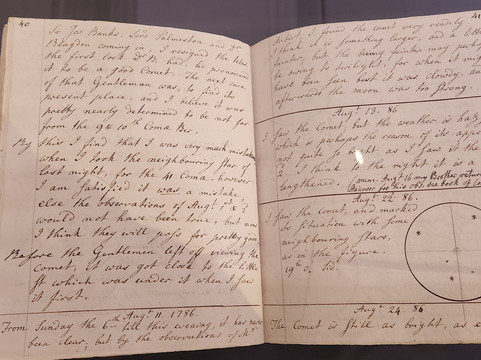 40
Sr. Jos. Banks, Lord Palmerston and Dr.
Blagden coming in, I resigned the
the first look Dr. B. had, he pronounced
it to be a good Comet. The next care
of that Gentleman was, to find its
present place, and I believe it was
pretty nearly determined to be not far
from the 9 & 10th Coma Ber.
By this I find that I was very much mistaken
when I took the neighbouring star of
last night, for the 41 Coma, however
I am satisfied it was a mistake,
else the observations of Augst. 1st & 2d
would not have been true, but now
I think they will pass for pretty good.
Before the Gentlemen left off viewing the
Comet, it was got close to the little
st which was under it when I saw
it first.
Augt. 11. 1786.
From Sunday the 6th till this evening, it has never
been clear; but by the observations of
41
I found the comet very readily
think it is something larger, and a little
but the being fainter may perhaps
be owing to twilight, for when it might
have been seen best it was cloudy, and
afterwards the moon was too strong.
Augt. 13. 86
I saw the Comet, but the weather is hazy
which is perhaps the reason of its appearing
not quite so bright as I saw it the
2d. I think to the right it is a
lengthened.
mem. Augt. 16 my Brother return
for this obs. see book of
Augt. 22. 86.
I saw the Comet, and marked
its situation with some
neighbouring stars,
as in the figure.
19h 0'
Augt. 24. 86
The Comet is still as bright, as